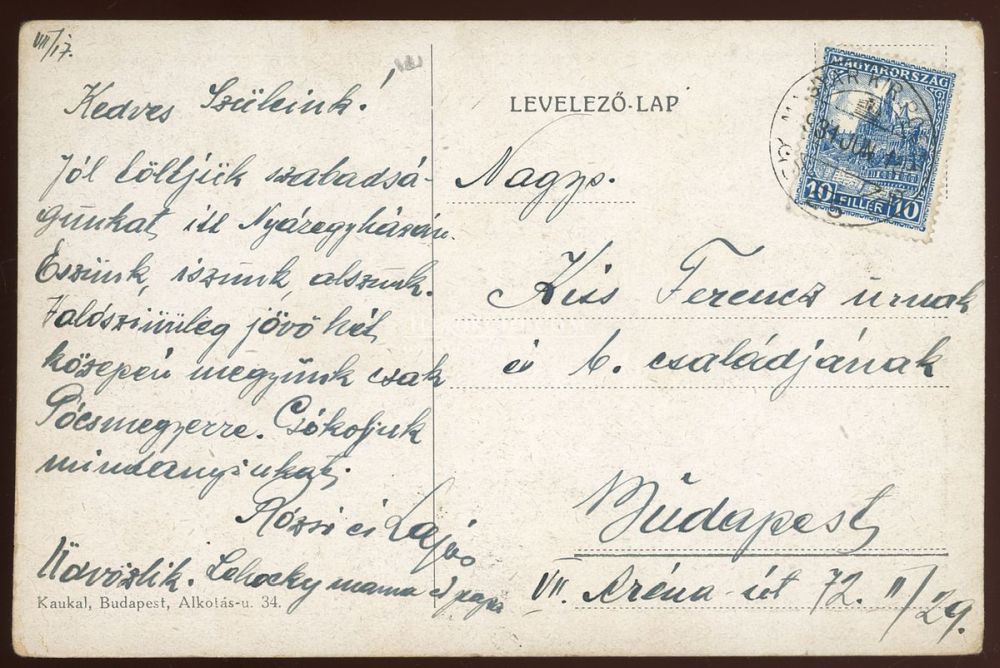 VII/17.
Kedves Szüleink!
Jól töltjük szabadsá-
gunkat itt Nyáregyházán.
Eszünk, iszunk, alszunk.
Valószinüleg jövő hét
közepén megyünk csak
Pócsmegyerre. Csókoljuk
mindanyiukat.
Rózsi és Lajos
Üdvözlik. Lohocky mama és papa
Kaukal, Budapest, Alkotás-u. 34.
LEVELEZŐ-LAP
MAGYARORSZÁG
10 FILLÉR 10
931 JUL
Nagys.
Kiss Ferencz úrnak
és b. családjának
Budapest
VII. Aréna-út 72. II/29.